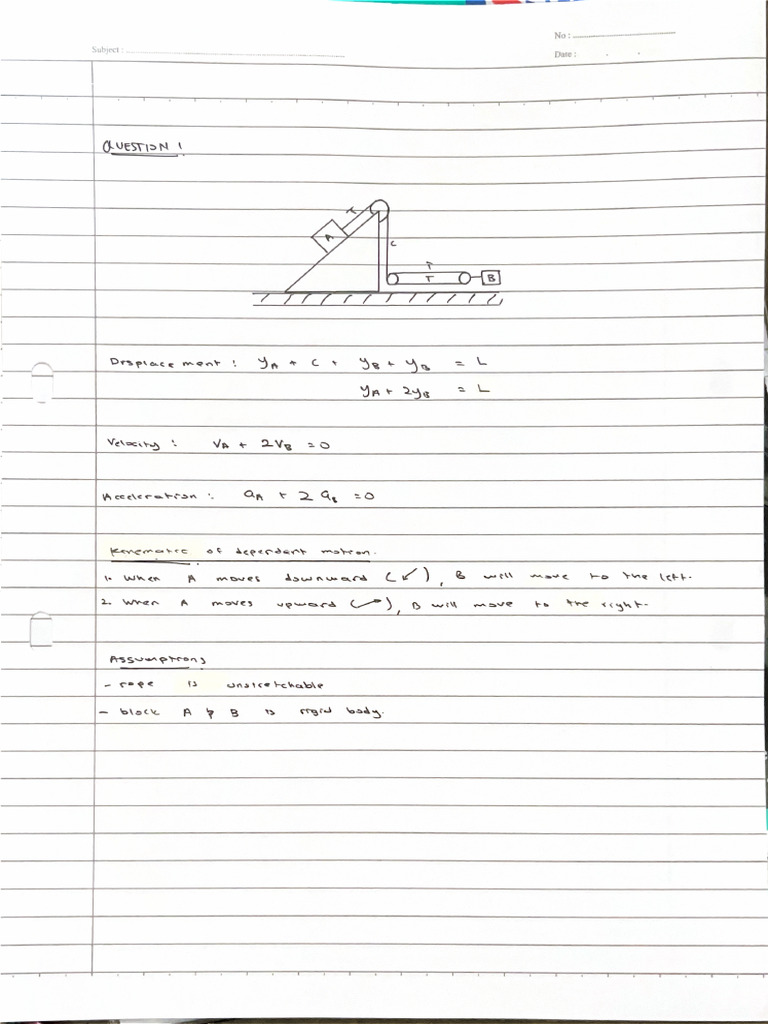 No :
Subject :
Date :
QUESTION 1
T
A
C
T
T
B
Displacement : yA + C + yB + yB = L
yA + 2yB = L
Velocity : VA + 2VB = 0
Acceleration : aA + 2 aB = 0
Kinematic of dependant motion.
1. When A moves downward (↙), B will move to the left.
2. When A moves upward (↗), B will move to the right.
Assumptions
- rope is unstretchable
- block A & B is rigid body.